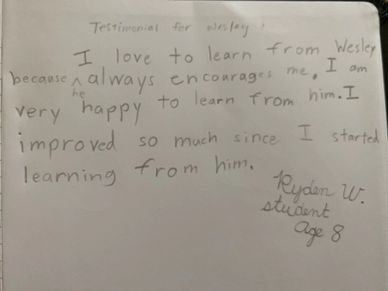 Testimonial for Wesley:
I love to learn from Wesley
because he always encourages me. I am
very happy to learn from him. I
improved so much since I started
learning from him.
Ryden W.
student
Age 8